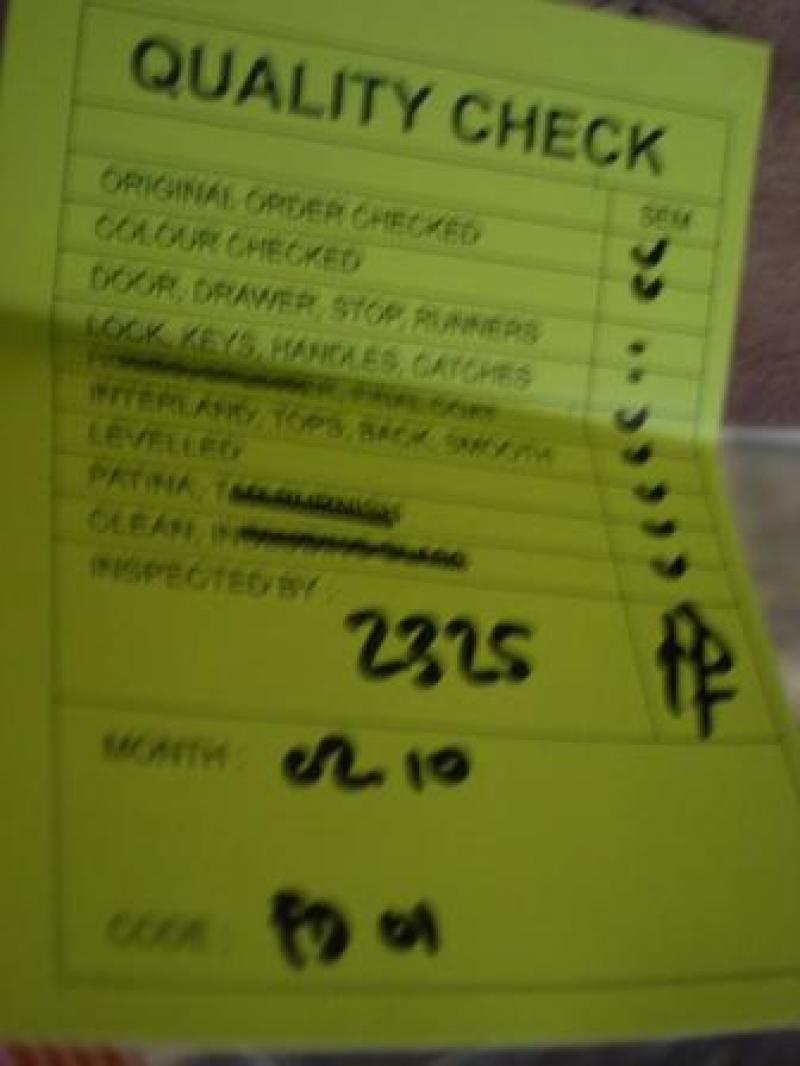 QUALITY CHECK
SEM
ORIGINAL ORDER CHECKED
COLOUR CHECKED
DOOR, DRAWER, STOP, RUNNERS
LOCK, KEYS, HANDLES, CATCHES
INTERLAND, TOPS, BACK, SMOOTH
LEVELLED
PATINA,
CLEAN,
INSPECTED BY :
2325
MONTH : 02 10
CODE : 01